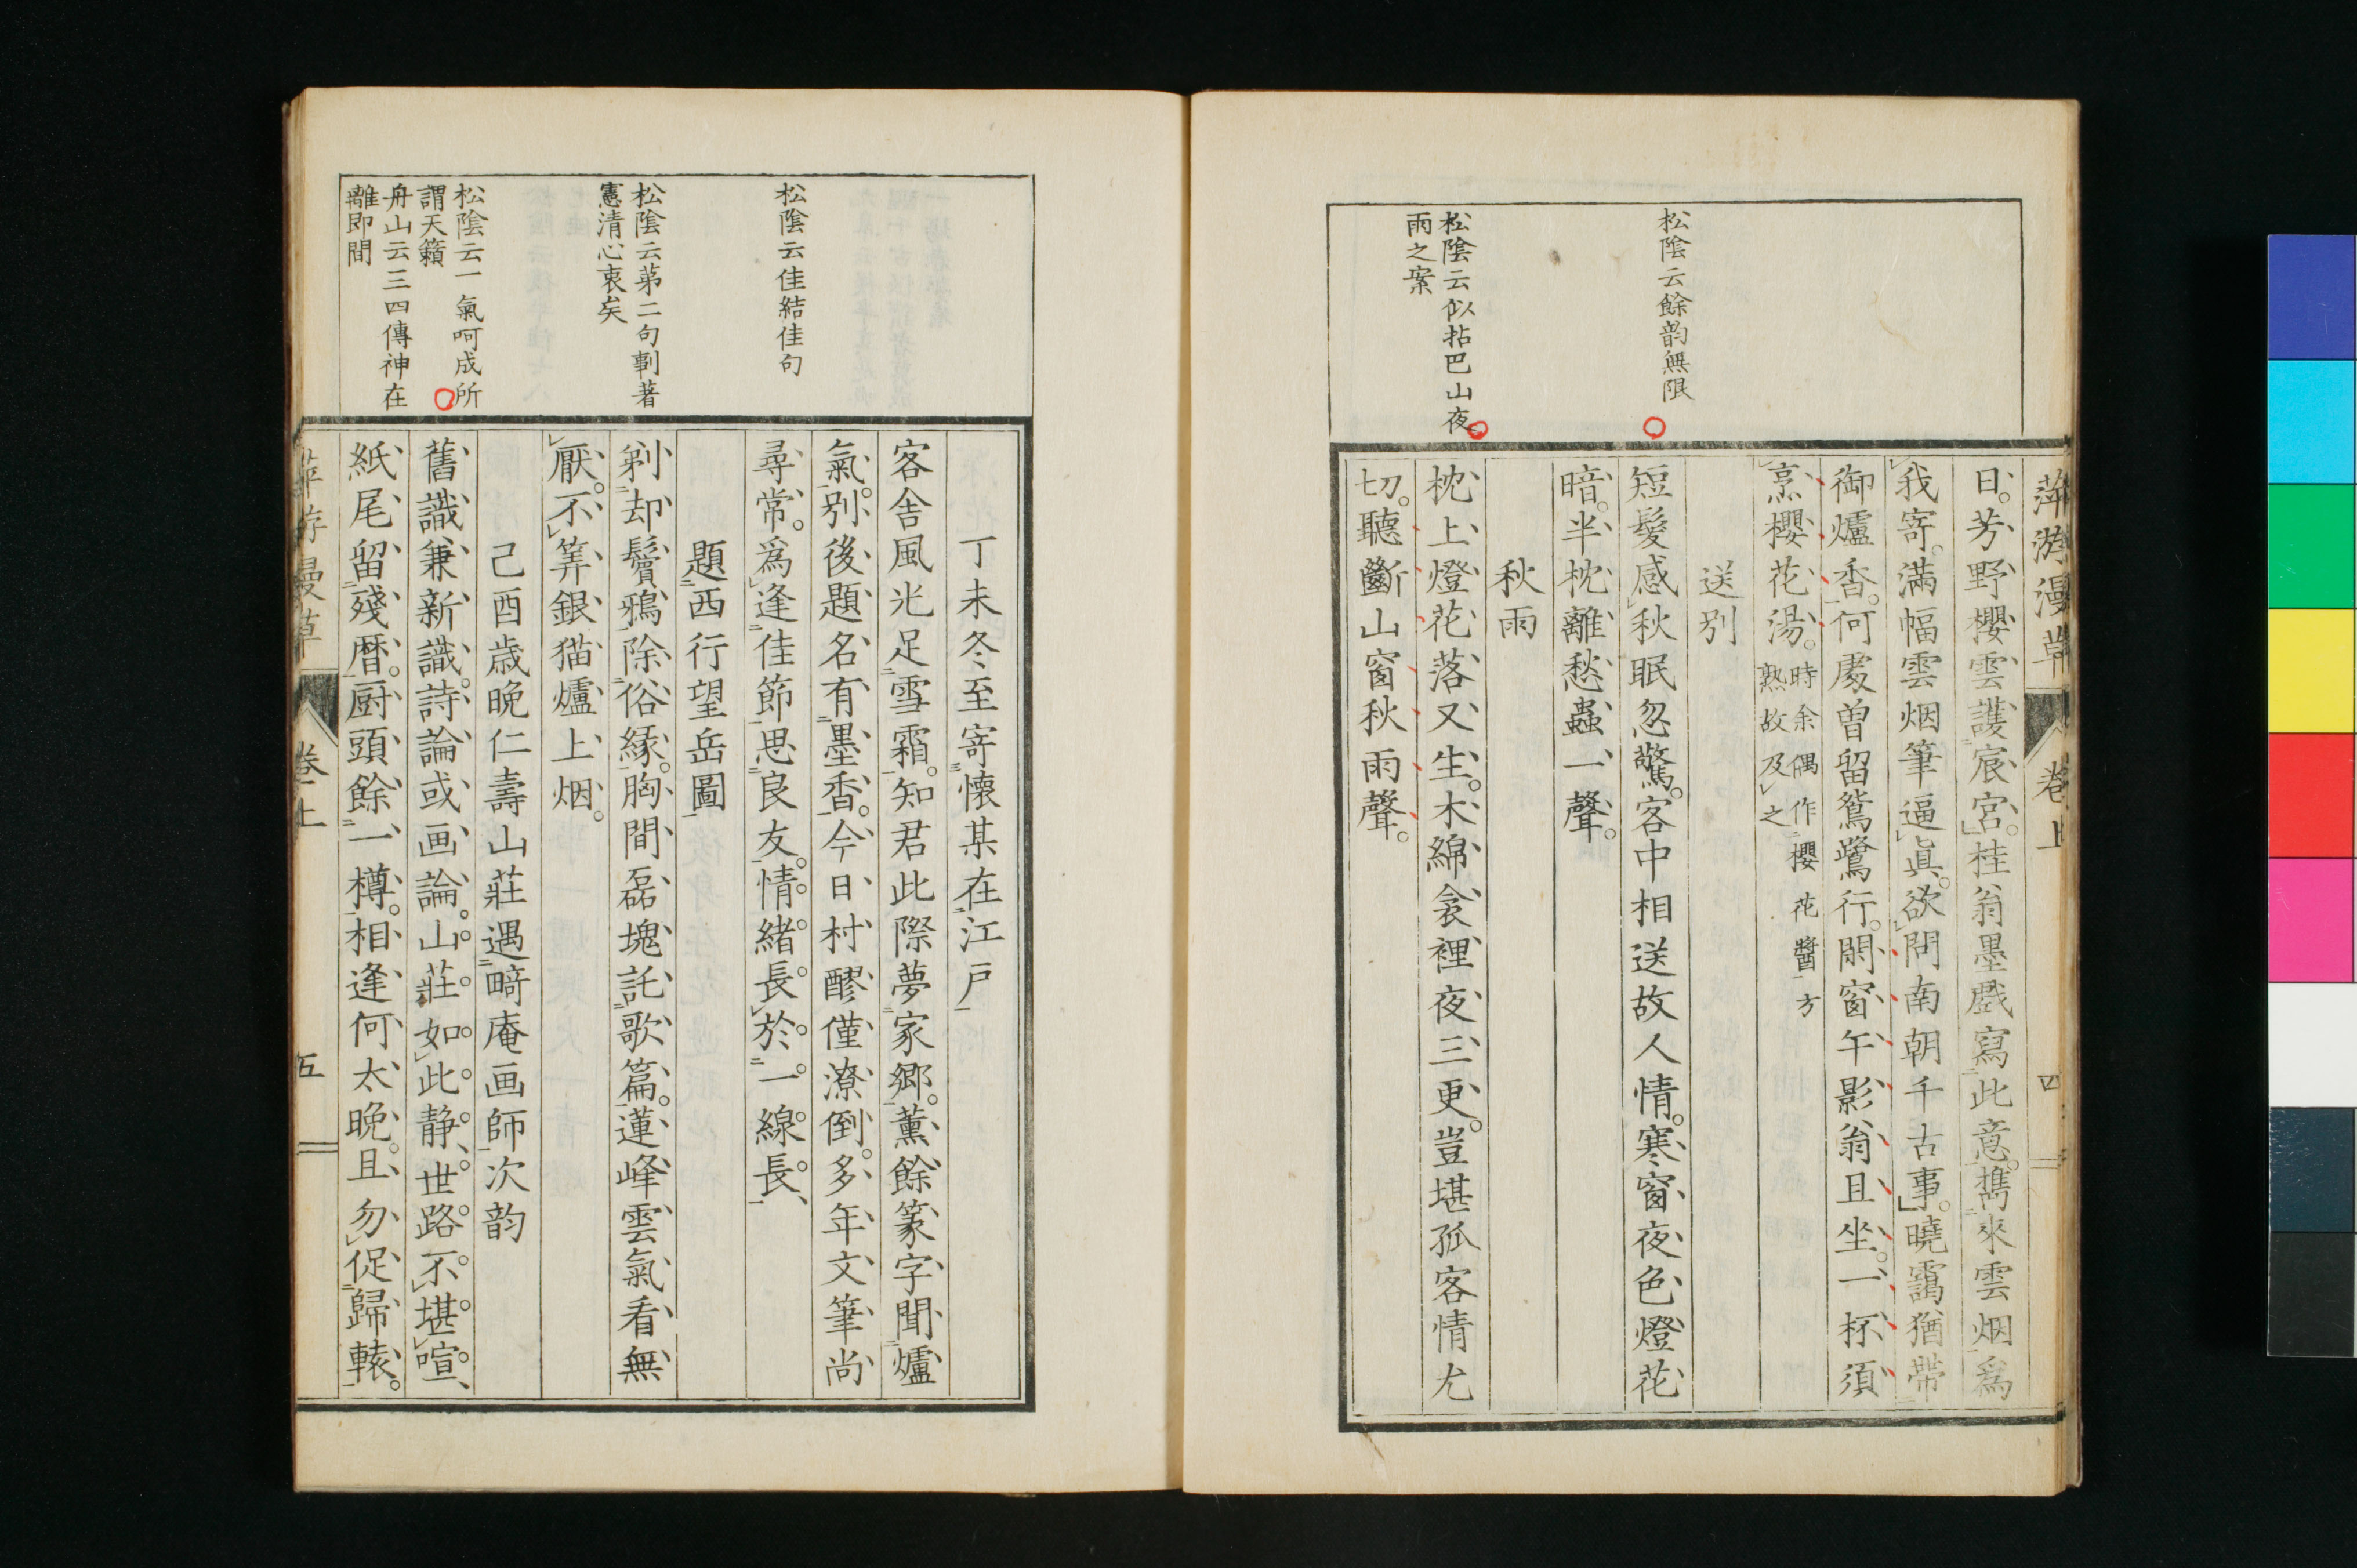 萍游漫草
卷上
四
松陰云餘韵無限
松陰云似拈巴山夜
雨之案
日。芳野櫻雲護宸宮。桂翁墨戲寫此意。携來雲烟爲
我寄。滿幅雲烟筆逼眞。欲問南朝千古事。曉靄猶帶
御爐香。何處曾留鴛鷺行。閑窗午影翁且坐。一杯須
烹櫻花湯。時余偶作櫻花醬方
熟故及之
送別
短髮感秋眠忽驚。客中相送故人情。寒窗夜色燈花
暗。半枕離愁蟲一聲。
秋雨
枕上燈花落又生。木綿衾裡夜三更。豈堪孤客情尤
切。聽斷山窗秋雨聲。
松陰云佳結佳句
松陰云苐二句剚著
憲清心衷矣
松陰云一氣呵成所
謂天籟
舟山云三四傳神在
離即間
丁未冬至寄懷某在江戸
客舎風光足雪霜。知君此際夢家郷。薫餘篆字聞爐
氣。別後題名有墨香。今日村醪僅潦倒。多年文筆尚
尋常。爲逢佳節思良友。情緒長於一線長
題西行望岳圖
剃却鬢鴉除俗縁。胸間磊塊託歌篇。蓮峰雲氣看無
厭。不筭銀猫爐上烟。
己酉歳晩仁壽山莊遇畸庵画師次韵
舊識兼新識。詩論或画論。山莊如此静、世路不堪喧、
紙尾留殘暦。厨頭餘一樽。相逢何太晩。且勿促歸轅。
萍游漫草
卷上
五